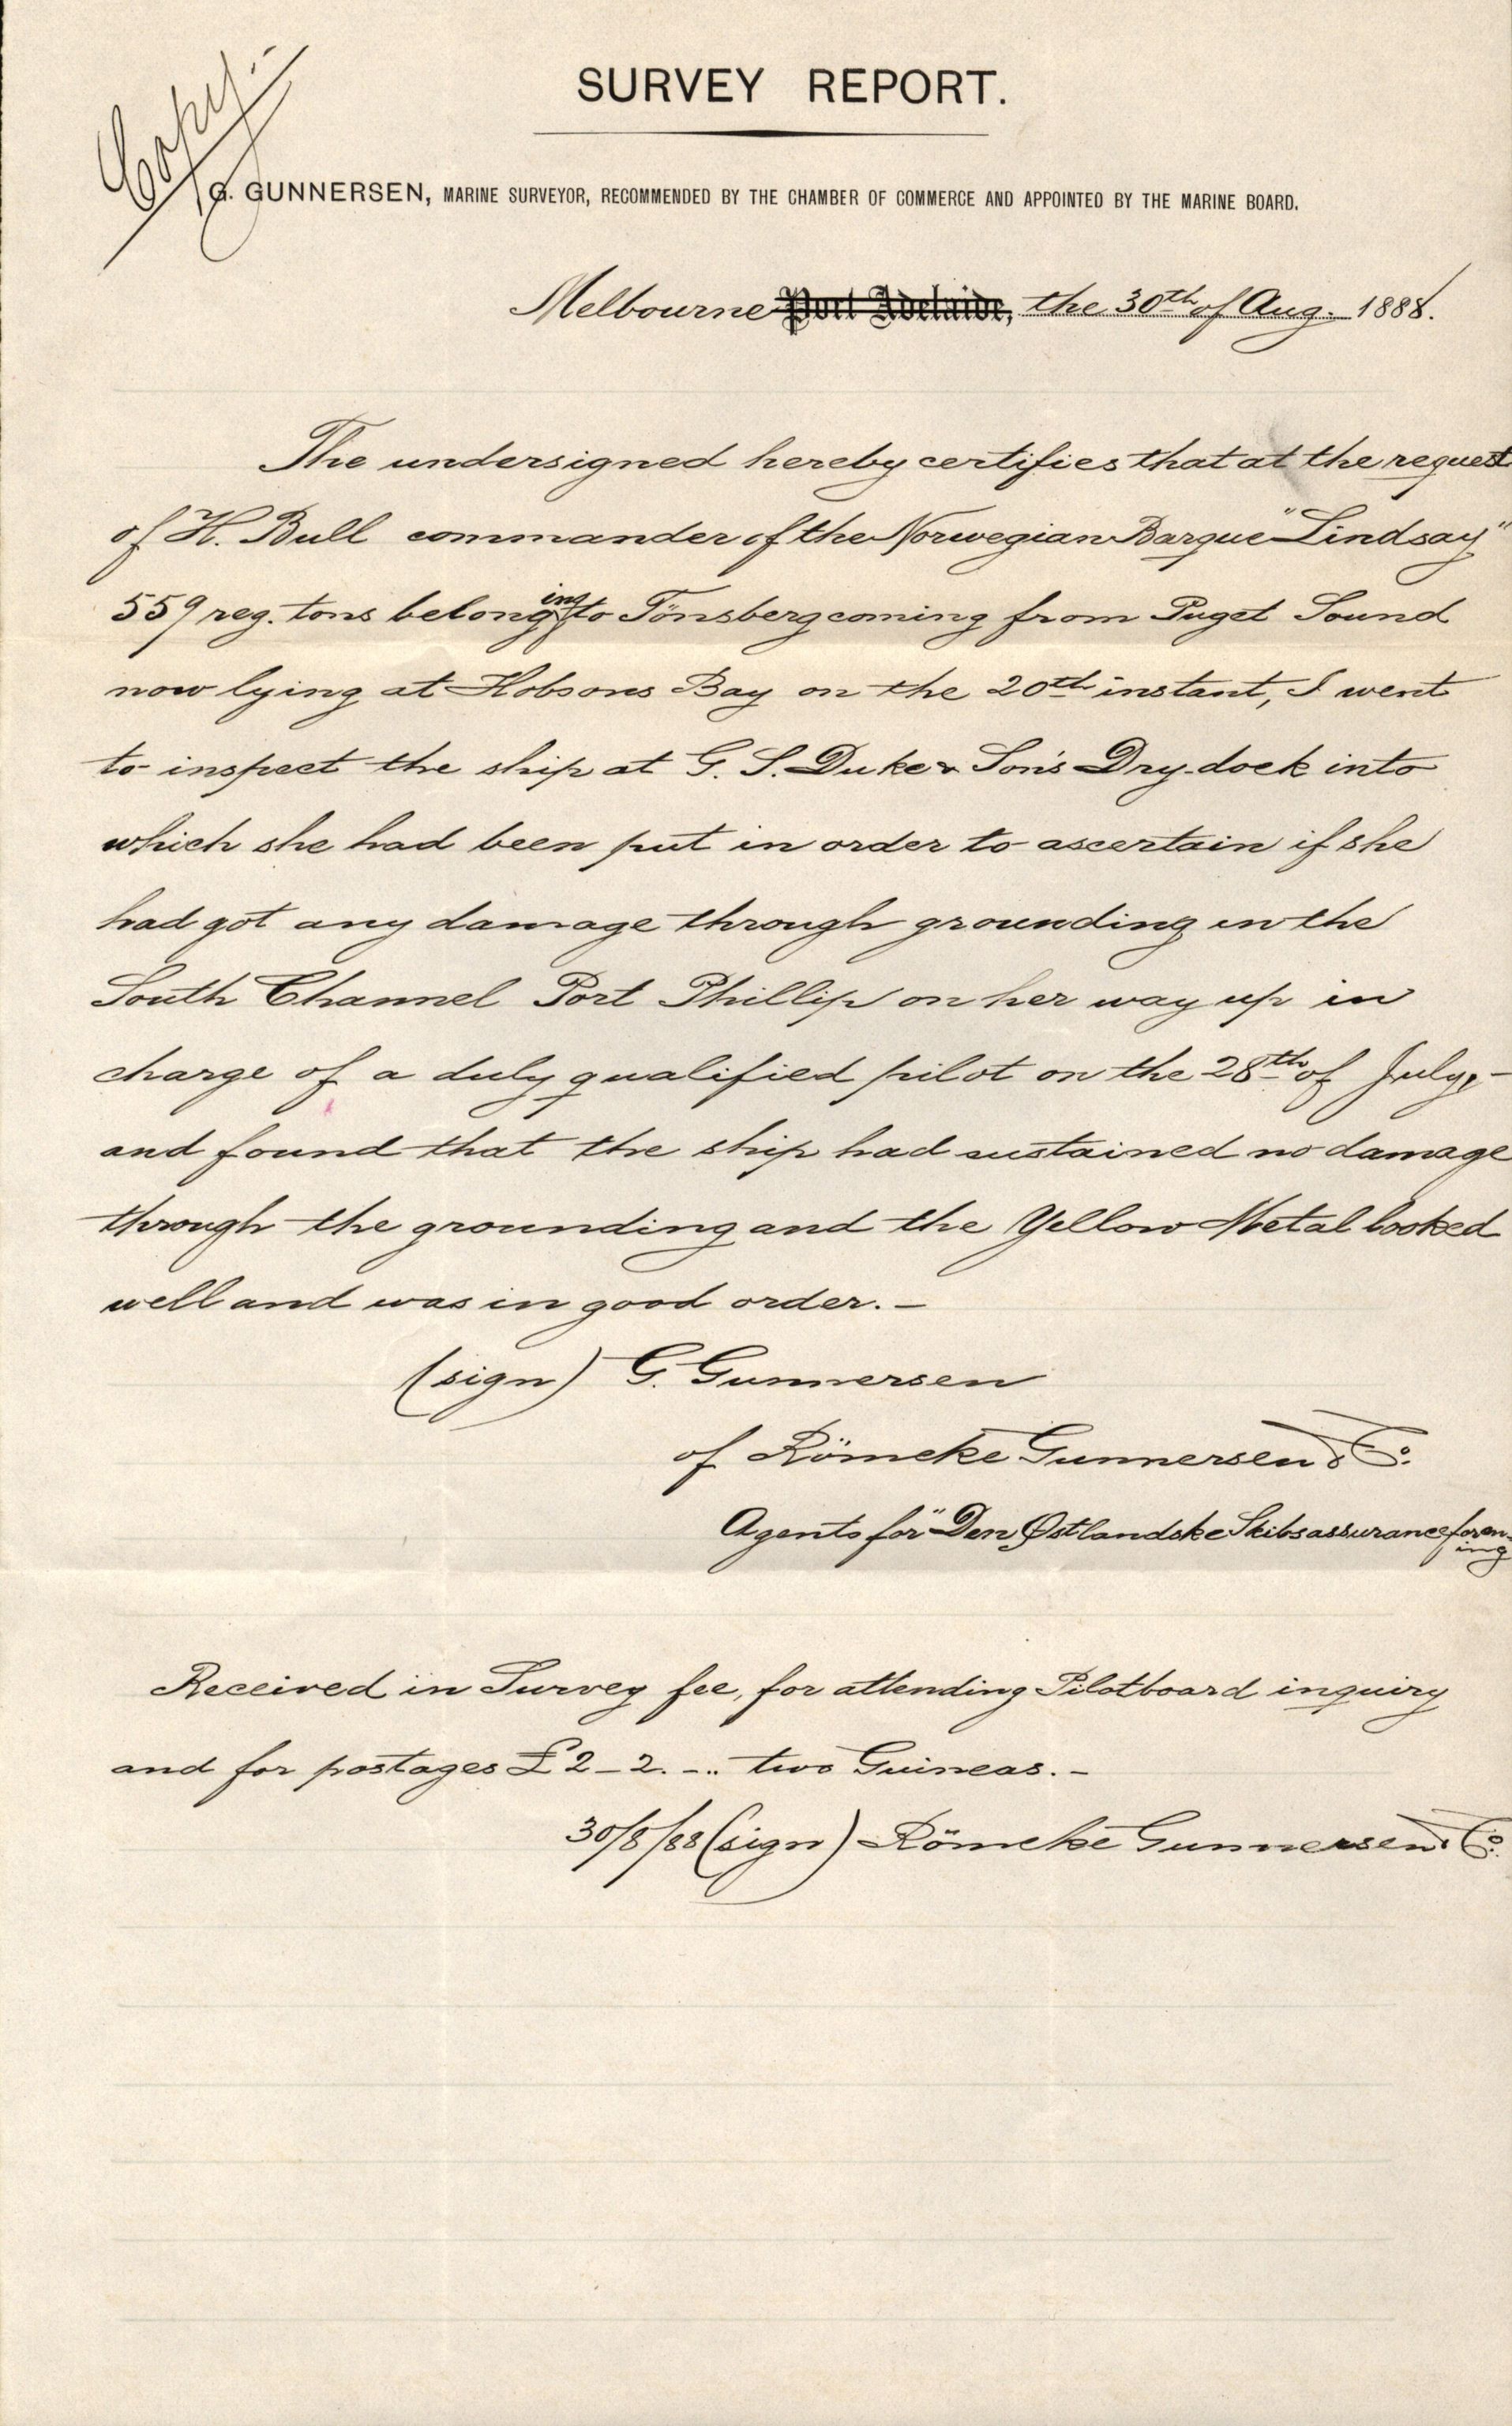 Copy.
SURVEY REPORT.
G. GUNNERSEN, MARINE SURVEYOR, RECOMMENDED BY THE CHAMBER OF COMMERCE AND APPOINTED BY THE MARINE BOARD.
Melbourne Port Adelaide, the 30th of Aug. 1888.
The undersigned hereby certifies that at the request
of H. Bull commander of the Norwegian Barque "Lindsay"
559 reg. tons belonging to Tönsberg coming from Puget Sound
now lying at Hobsons Bay on the 20th instant, I went
to inspect the ship at G. S. Duke & Son's Dry-dock into
which she had been put in order to ascertain if she
had got any damage through grounding in the
South Channel Port Phillip on her way up in
charge of a duly qualified pilot on the 28th of July, -
and found that the ship had sustained no damage
through the grounding and the Yellow Metal looked
well and was in good order. -
(sign) G. Gunnersen
of Römcke Gunnersen & Co.
Agents for "Den Østlandske Skibsassuranceforen-
ing
Received in Survey fee, for attending Pilotboard inquiry
and for postages £2-2. -.. two Guineas. -
30/8/88 (sign) Römcke Gunnersen & Co.